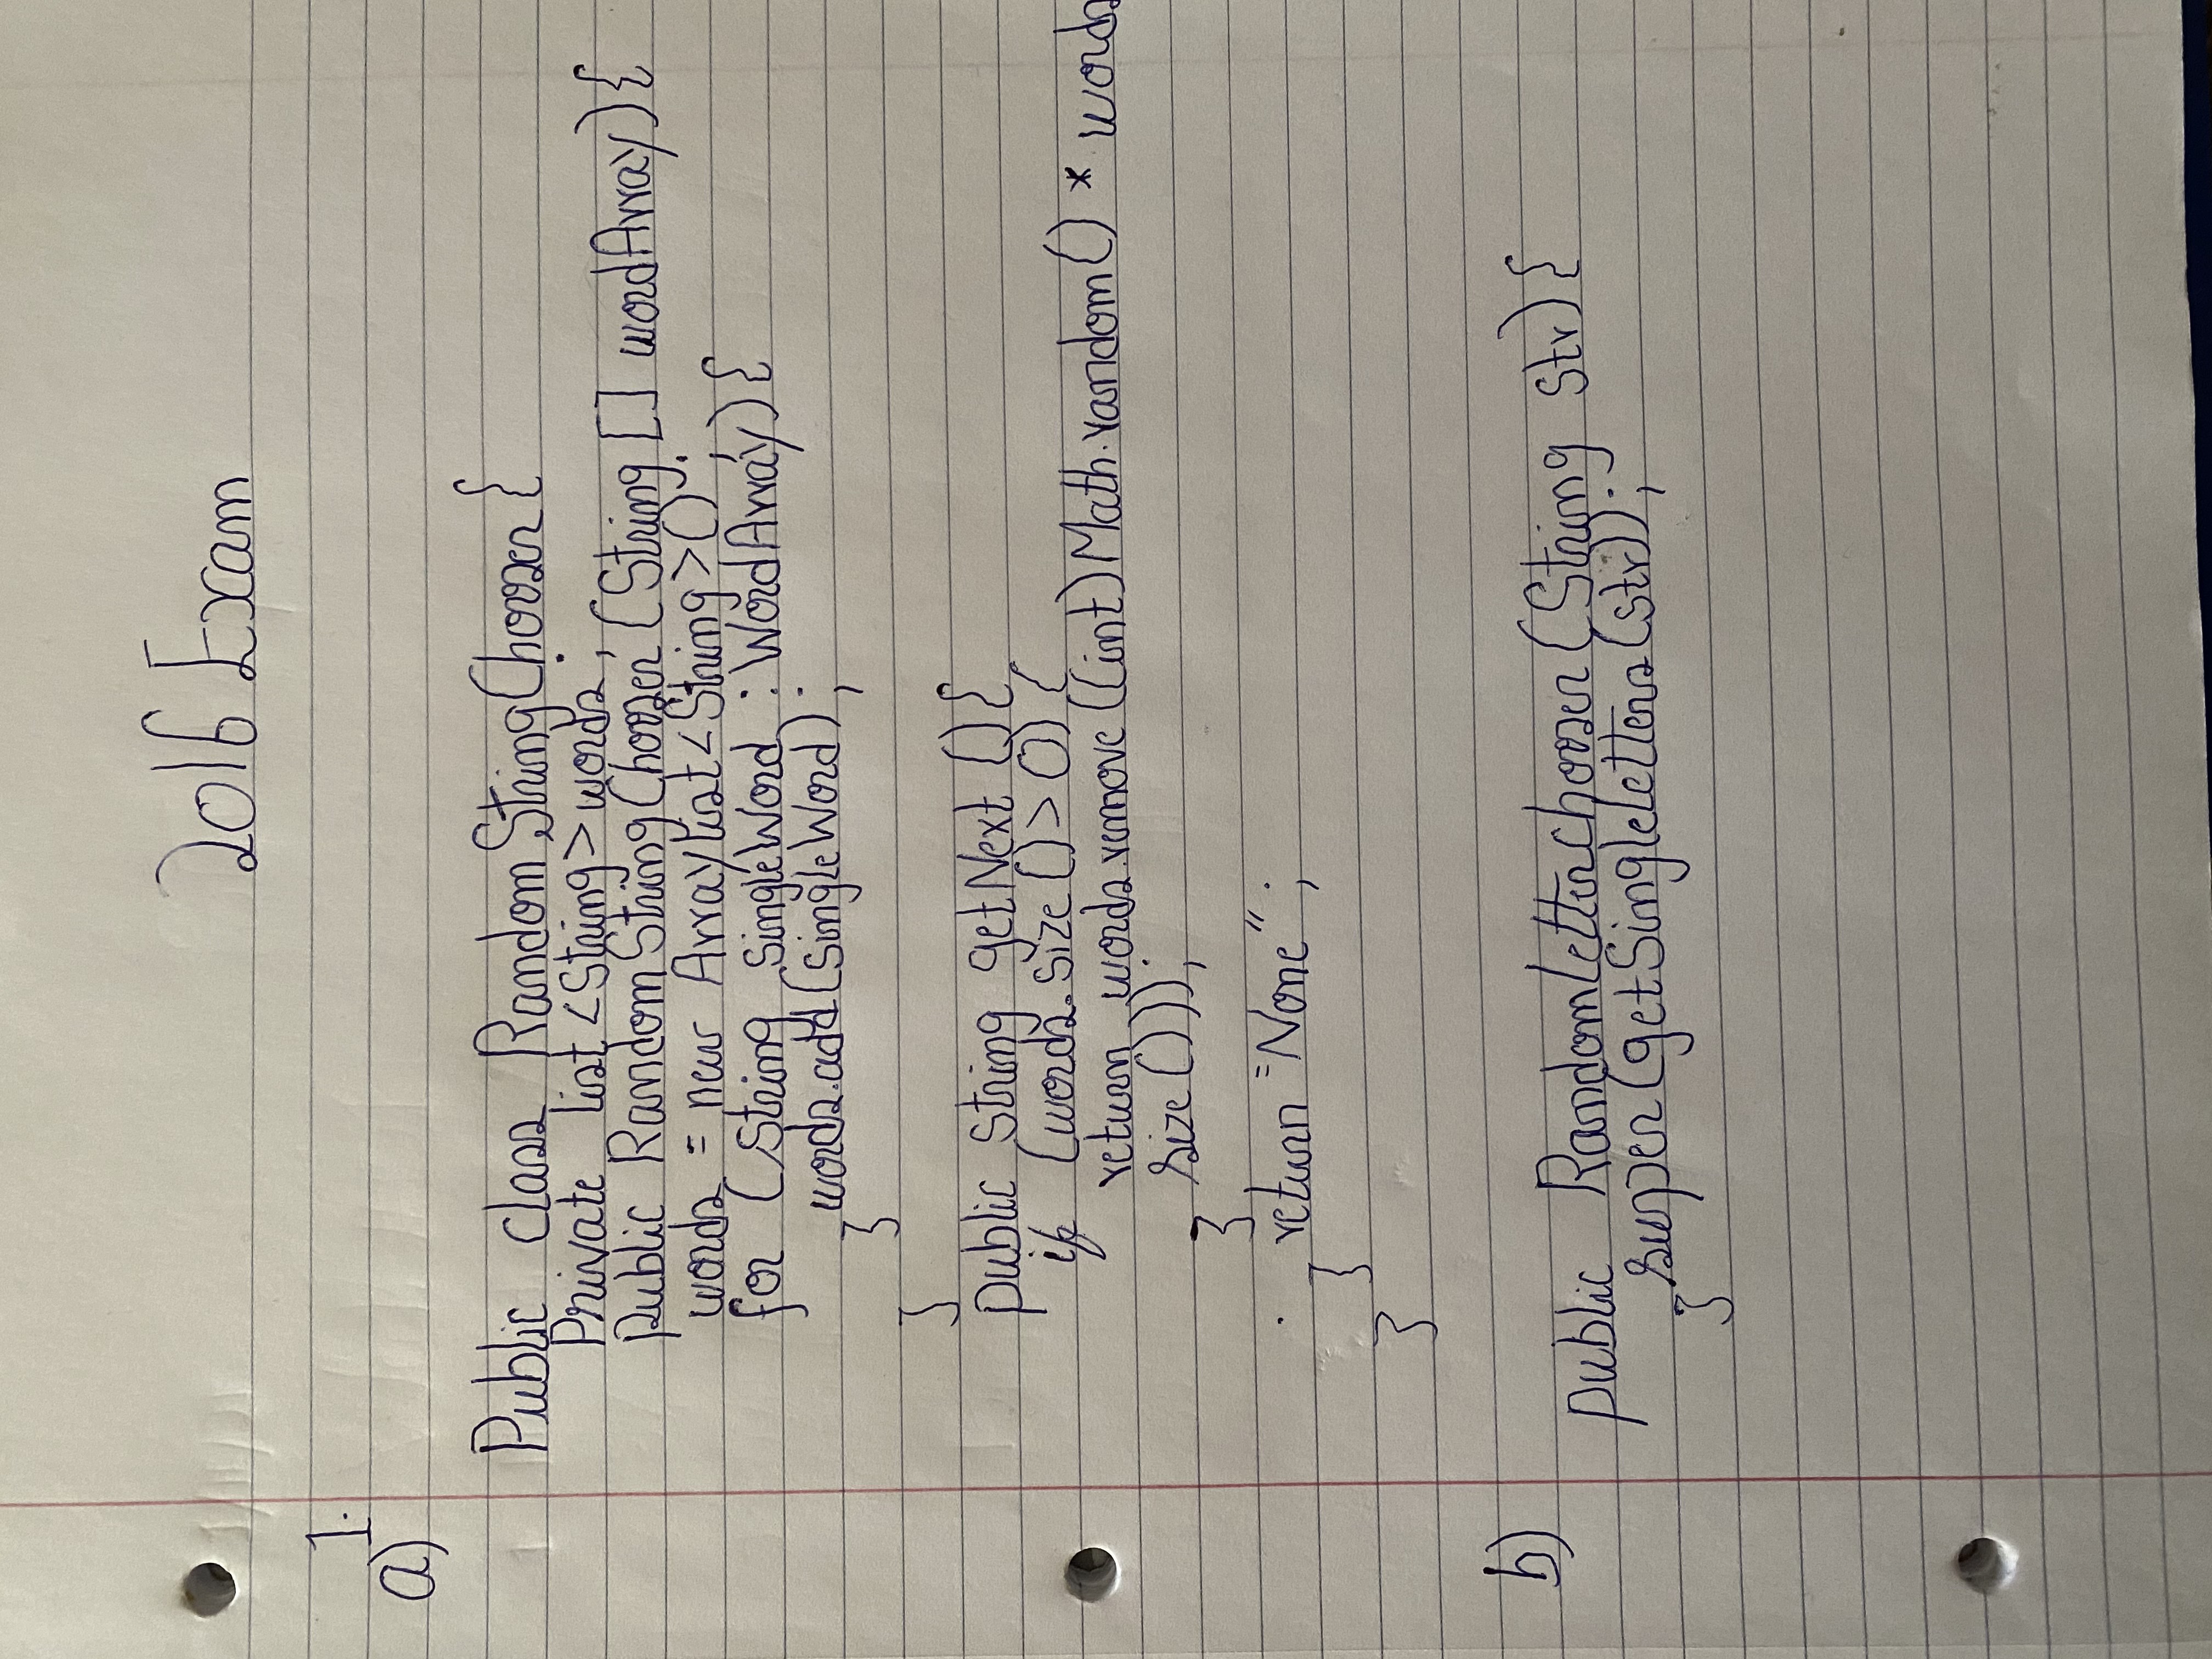 2016 Exam
1.
a)
Public class RandomStringChooser{
Private list<String> words;
public RandomStringChooser(String[] wordArray){
words = new Arraylist<String>();
for (String singleWord : WordArray){
words.add(singleWord);
}
}
public String getNext(){
if (words.size()>0){
return words.remove((int)Math.random() * words
size()));
}
return "None";
}
}
b)
public RandomLetterchooser(String str){
super(getSingleLetters(str));
}